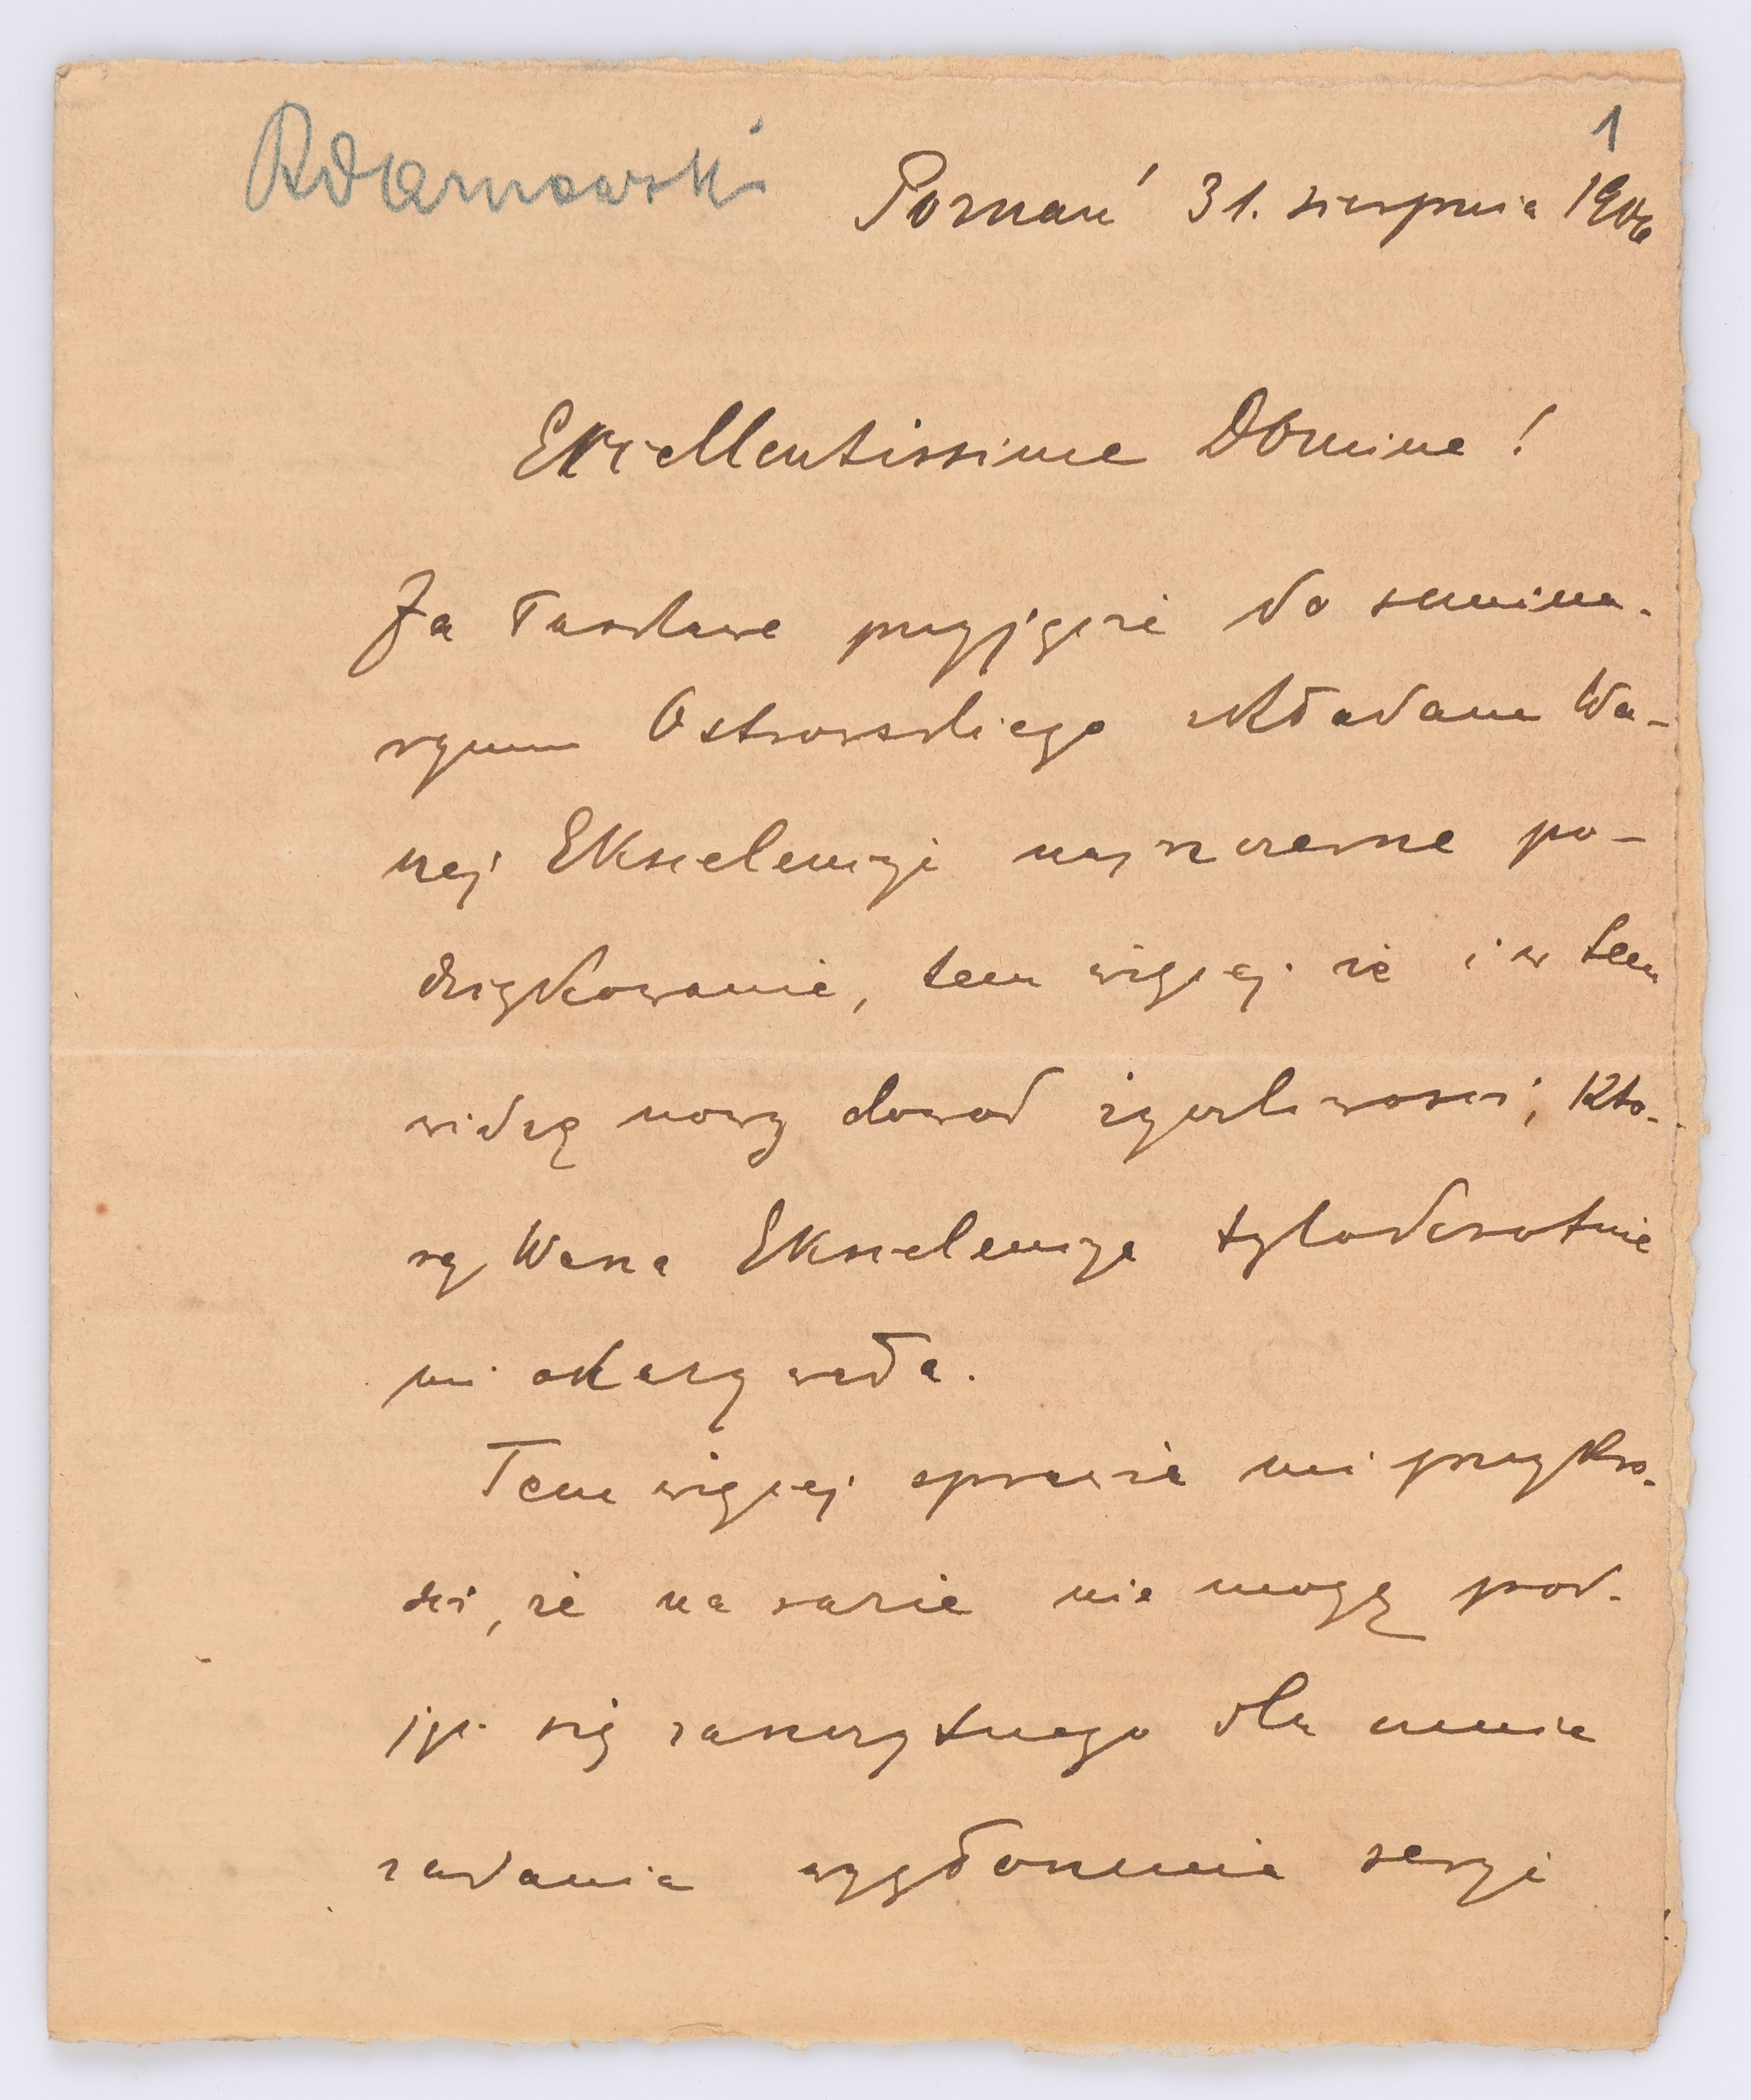 Adamski
1
Poznań 31. sierpnia 1906
Excellentissime Domine!
Za łaskawe przyjęcie do semina-
ryum Ostrowskiego składam Wa-
szej Ekscelencyi najszczersze po-
dziękowanie, tem więcej że i w tem
widzę nowy dowod życzliwości, któ-
rą Wasza Ekscelencya tylokrotnie
mi okazywała.
Tem więcej sprawia mi przykro-
ści, że na razie nie mogę pod-
jąć się zaszczytnego dla mnie
zadania wygłoszenia seryi